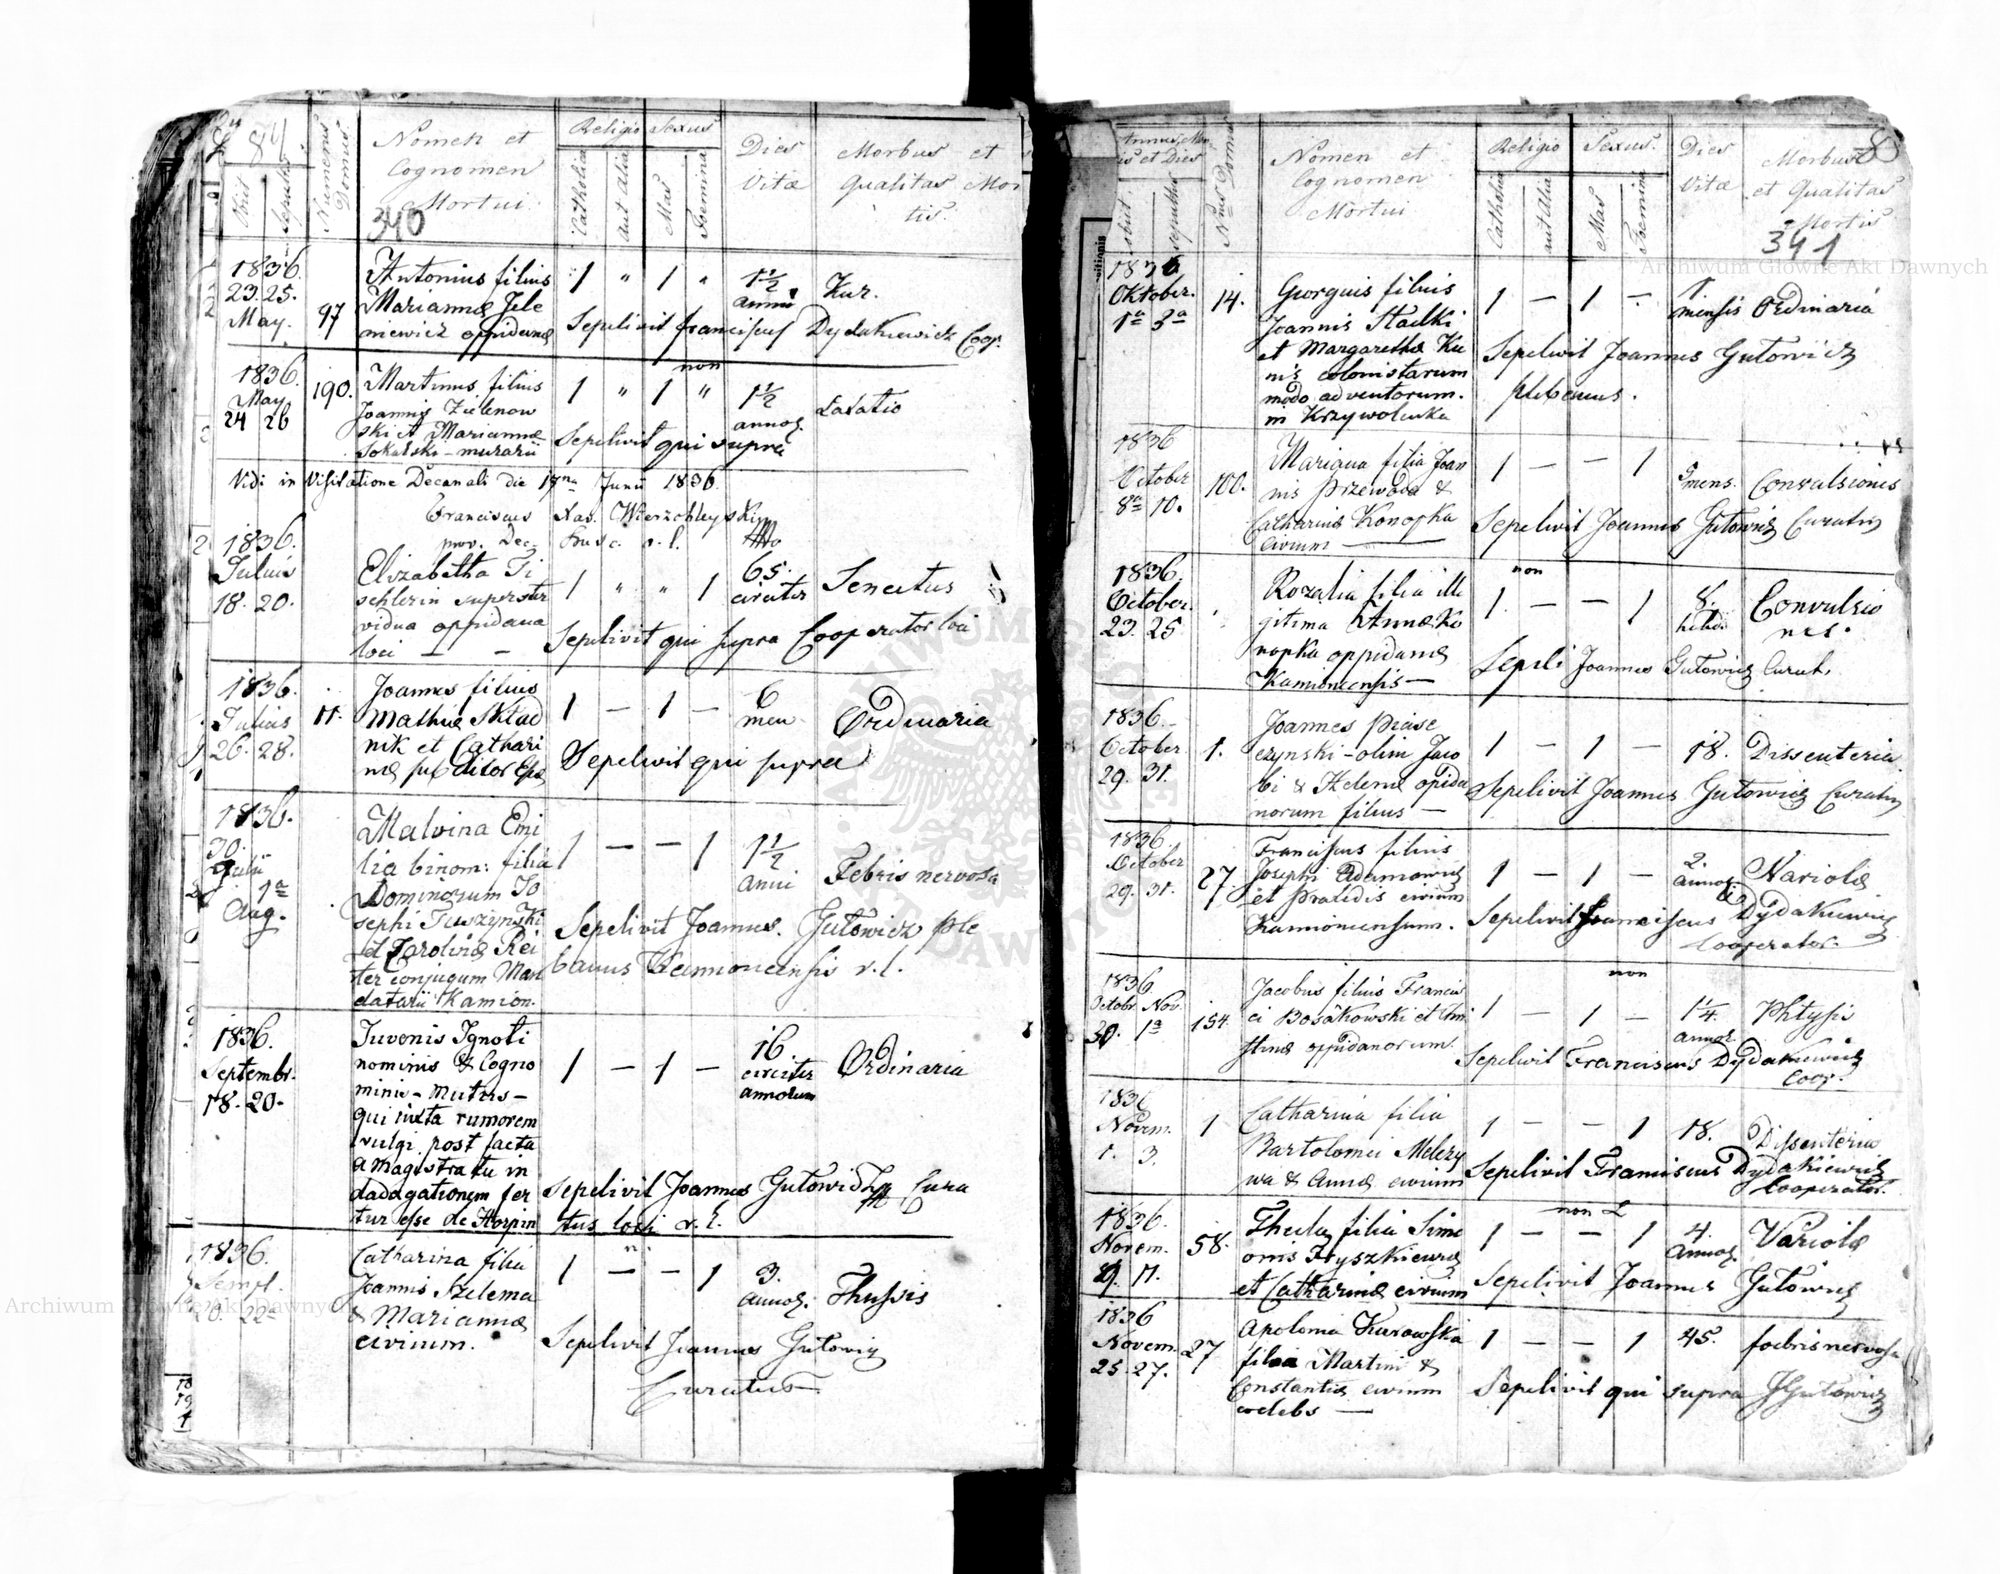 84
Obiit
Sepultus
Numerus Domus
Nomen et
Cognomen
Mortui
340
Religio
Sexus
Catholica
Aut Alia
Mas
Foemina
Dies
Vitæ
Morbus et
Qualitas Mor
tis.
1836.
23. 25.
May.
97
Antonius filius
Mariannæ Jele
niewicz oppidanæ
1 " 1 "
1½
anni
Kur.
Sepelivit Franciscus Dydakiewicz Coop.
1836.
May.
24 26
190.
Martinus filius
Joannis Zielenow
ski et Mariannæ
Sokalski - murarii
1 " 1 "
non
1½
annor.
Laxatio
Sepelivit qui supra
Vidi in Visitatione Decanali die 17ma Junii 1836.
Franciscus Xav. Wierzchleyski
prov. Dec.
1836.
Julius
18. 20.
Elizabetha Ti
schlerin superster
vidua oppidana
loci — —
1 " " 1
65.
circiter
Senectus
Sepelivit qui supra Cooperator loci
1836.
Julius
26. 28.
11.
Joannes filius
Mathiæ Sklad
nik et Cathari
næ
1 — 1 —
6
men
Ordinaria
Sepelivit qui supra
1836.
30.
Julii
1a
Aug.
Malvina Emi
lia binom: filia
Dominorum Jo
sephi Tuszynski
et Carolinæ Rei
ter conjugum Man
datarii Kamion.
1 — — 1
1½
anni
Febris nervosa
Sepelivit Joannes Gutowicz ple
banus Kamioncensis r. l.
1836.
Septembr.
18. 20.
Juvenis Ignoti
nominis & Cogno
minis - Mutus -
qui iuxta rumorem
vulgi post facta
a magistratu in
dadagationem fer
tur esse de Horpin
1 — 1 —
16.
circiter
annorum
Ordinaria
Sepelivit Joannes Gutowicz Cura
tus loci r. l.
1836.
Sempt.
20. 22
Catharina filia
Joannis Szelema
& Mariannæ
civium.
1 — — 1
3.
annor.
Thussis
Sepelivit Joannes Gutowicz
Curatus
Annus, Men
sis et Dies
obiit
sepultus
Nrus Domus
Nomen et
Cognomen
Mortui
Religio
Sexus.
Catholica
aut Alia
Mas
Foemina
Dies
Vitæ
Morbus
et Qualitas
Mortis
341
1836
Oktober.
1a 3a
14.
Georgius filius
Joannis Stadki
et Margarethæ Ku
nis colonistarum
modo adventorum.
in Krzywolanka
1 — 1 —
1
mensis
Ordinaria
Sepelivit Joannes Gutowicz
plebanus.
1836
October
8a 10.
100.
Mariana filia Joan
nis Przewoda &
Catharinæ Konopka
civium —
1 — — 1
mens.
Convulsiones
Sepelivit Joannes Gutowicz Curatus
1836.
October.
23. 25
Rozalia filia ille
gitima Annæ Ko
nopka oppidanæ
Kamioncensis —
non
1. — — 1
8.
hebd.
Convulsio
nes.
Sepeli Joannes Gutowicz Curat.
1836.
October
29. 31.
1.
Joannes
czynski - olim Jaco
bi & Helenæ opida
norum filius —
1 — 1 —
18.
Dissenteria
Sepelivit Joannes Gutowicz Curatus
1836.
October
29. 31.
27
Franciscus filius
Josephi Adamowicz
et Praxedis civium
Kamioncensium.
1 — 1 —
2.
annor.
Variolæ
Sepelivit Franciscus Dydakiewicz
Cooperator.
1836.
Octobr. Nov.
30. 1a
154.
Jacobus filius Francis
ci Bosakowski et Chri
stinæ oppidanorum.
non
1 — 1 —
1¼
annor.
Phtysis
Sepelivit Franciscus Dydakiewicz
Coop.
1836
Novem.
1. 3.
1
Catharina filia
Bartolomei Melezy
wa & Annæ civium
1 — — 1
18.
Dissenteria
Sepelivit Franciscus Dydakiewicz
Cooperator.
1836.
Novem.
9. 11.
58.
Thecla filia Sime
onis Fryszkiewicz
et Catharinæ civium
non
1 — — 1
4.
annor.
Variolæ
Sepelivit Joannes Gutowicz
1836
Novem.
25. 27.
27
Apolonia Kurowska
filia Martini &
Constantiæ civium
coelebs —
1 — — 1
45.
foebris nervosa
Sepelivit qui supra JGutowicz
Archiwum Główne Akt Dawnych
Archiwum Główne Akt Dawnych